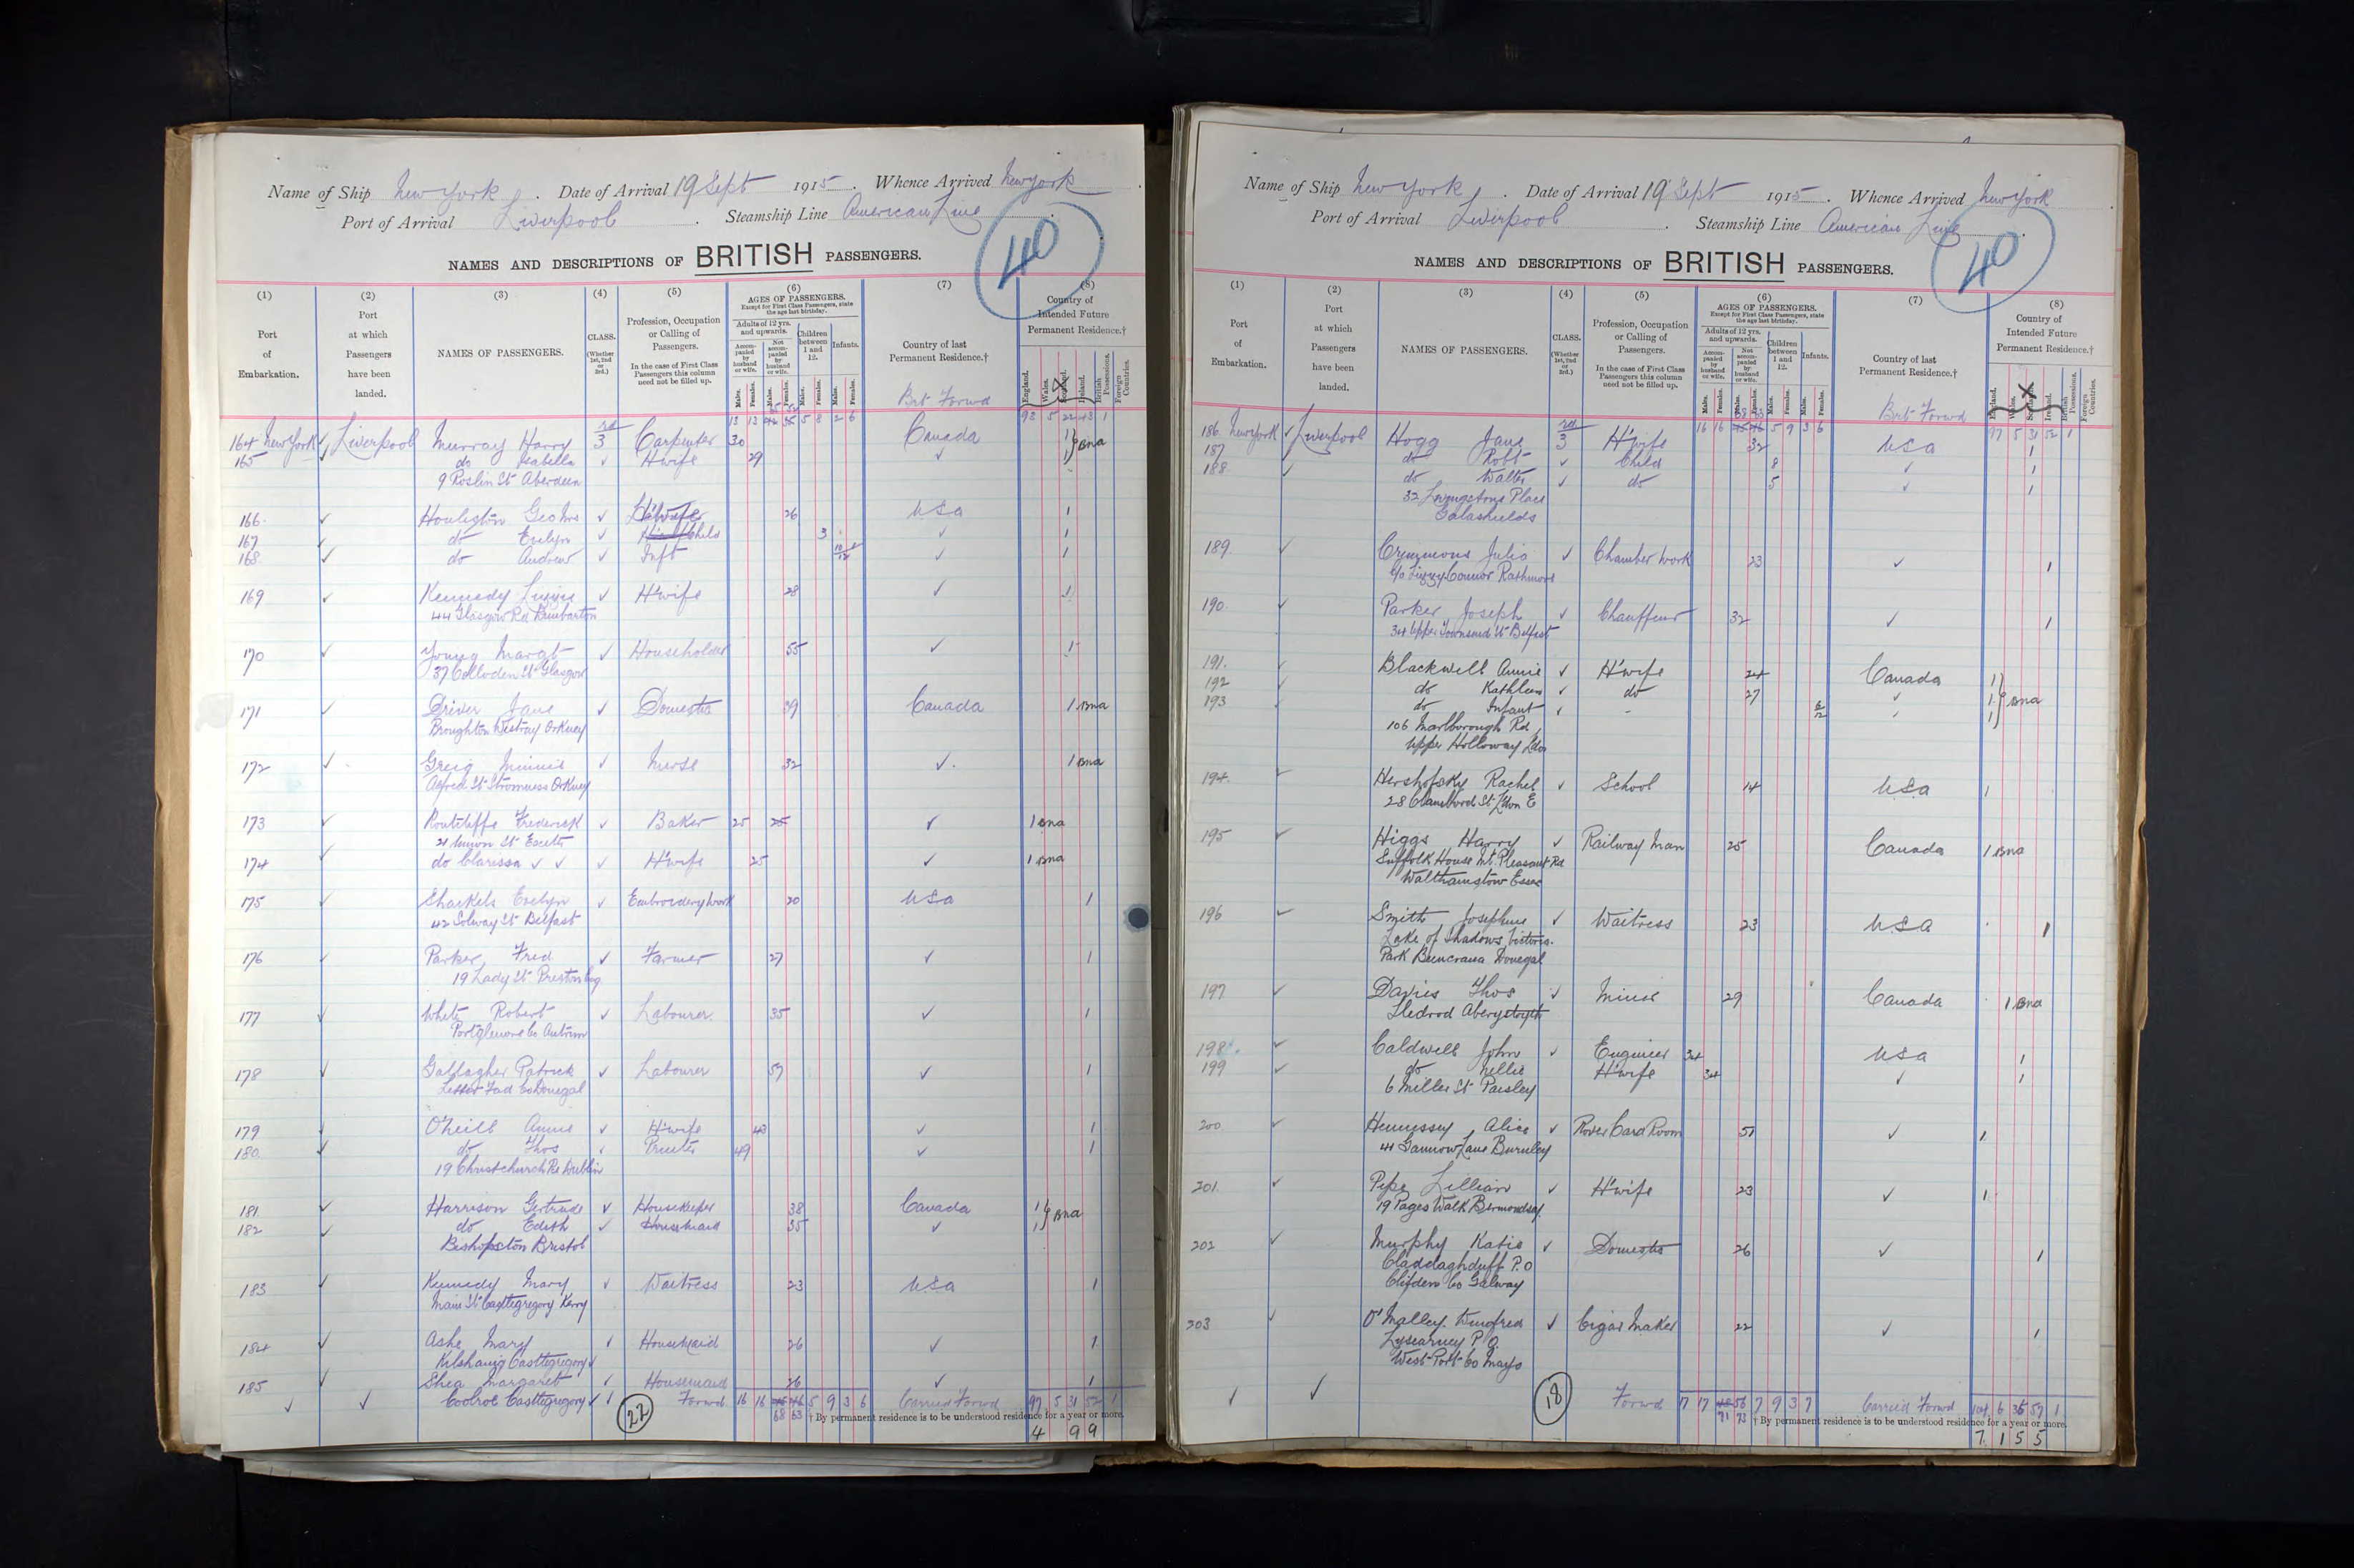 Name of Ship New York . Date of Arrival 19 Sept 1915 . Whence Arrived New York
Port of Arrival Liverpool . Steamship Line American Line
40
NAMES AND DESCRIPTIONS OF BRITISH PASSENGERS.
(1) (2) (3) (4) (5) (6) (7) (8)
Port of Embarkation.
Port at which Passengers have been landed.
NAMES OF PASSENGERS.
CLASS. (Whether 1st, 2nd or 3rd.)
Profession, Occupation or Calling of Passengers.
In the case of First Class Passengers this column need not be filled up.
AGES OF PASSENGERS.
Except for First Class Passengers, state the age last birthday.
Adults of 12 yrs. and upwards.
Accompanied by husband or wife.
Not accompanied by husband or wife.
Children between 1 and 12.
Infants.
Males. Females. Males. Females. Males. Females. Males. Females.
Country of last Permanent Residence.†
Country of Intended Future Permanent Residence.†
England. Wales. Scotland. Ireland. British Possessions. Foreign Countries.
Brt Forwd
13 13 5 8 2 6 93 5 22 48 1
164 New York ✓ Liverpool Murray Harry 3rd Carpenter 30 Canada 1 BNA
165 do Isabella ✓ H'wife 29 ✓ 1
9 Roslin St Aberdeen
166 ✓ Houliston Geo Mrs ✓ H'wife 26 USA 1
167 ✓ do Evelyn ✓ Child 3 ✓ 1
168 ✓ do Andrew ✓ Inft 10/12 ✓ 1
169 ✓ Kennedy Lizzie ✓ H'wife 28 ✓ 1
44 Glasgow Rd Dumbarton
170 ✓ Young Margt ✓ Householder 55 ✓ 1
37 Culloden St Glasgow
171 ✓ Driver Jane ✓ Domestic 39 Canada 1 BNA
Broughton Westray Orkney
172 ✓ Greig Minnie ✓ Nurse 32 ✓ 1 BNA
Alfred St Stromness Orkney
173 ✓ Routcliffe Frederick ✓ Baker 25 25 ✓ 1 BNA
21 Union St Exeter
174 ✓ do Clarissa ✓ ✓ ✓ H'wife 25 ✓ 1 BNA
175 ✓ Shackels Evelyn ✓ Embroidery Work 20 USA 1
42 Solway St Belfast
176 ✓ Parker Fred ✓ Farmer 27 ✓ 1
19 Lady St Preston Eng
177 ✓ White Robert ✓ Labourer 35 ✓ 1
Portglenone Co Antrim
178 ✓ Gallagher Patrick ✓ Labourer 57 ✓ 1
Fad Co Donegal
179 ✓ O'Neill Annie ✓ H'wife 43 ✓ 1
180 ✓ do Thos ✓ Printer 49 ✓ 1
19 Christchurch Dublin
181 ✓ Harrison Gertrude ✓ Housekeeper 38 Canada 1 BNA
182 ✓ do Edith ✓ Housemaid 35 ✓ 1
Bishopston Bristol
183 ✓ Kennedy Mary ✓ Waitress 23 USA 1
Main St Castlegregory Kerry
184 ✓ Ashe Mary ✓ Housemaid 26 ✓ 1
Kilshanig Castlegregory
185 ✓ Shea Margaret ✓ Housemaid 26 ✓ 1
Coolroe Castlegregory
22 Forwd 16 16 45 46 5 9 3 6 Carried Forwd 97 5 31 52 1
68 63 † By permanent residence is to be understood residence for a year or more.
4 9 9
Name of Ship New York . Date of Arrival 19 Sept 1915 . Whence Arrived New York
Port of Arrival Liverpool . Steamship Line American Line
40
NAMES AND DESCRIPTIONS OF BRITISH PASSENGERS.
(1) (2) (3) (4) (5) (6) (7) (8)
Port of Embarkation.
Port at which Passengers have been landed.
NAMES OF PASSENGERS.
CLASS. (Whether 1st, 2nd or 3rd.)
Profession, Occupation or Calling of Passengers.
In the case of First Class Passengers this column need not be filled up.
AGES OF PASSENGERS.
Except for First Class Passengers, state the age last birthday.
Adults of 12 yrs. and upwards.
Accompanied by husband or wife.
Not accompanied by husband or wife.
Children between 1 and 12.
Infants.
Males. Females. Males. Females. Males. Females. Males. Females.
Country of last Permanent Residence.†
Country of Intended Future Permanent Residence.†
England. Wales. Scotland. Ireland. British Possessions. Foreign Countries.
Brt Forwd
16 16 45 46 5 9 3 6 97 5 31 52 1
186 New York ✓ Liverpool Hogg Jane 3rd H'wife 32 USA 1
187 do Robt ✓ Child 8 ✓ 1
188 ✓ do Walter ✓ do 5 ✓ 1
32 Livingstone Place
Galashields
189 ✓ Julia ✓ Chamber Work 23 ✓ 1
c/o Lizzy Connor Rathmore
190 ✓ Parker Joseph ✓ Chauffeur 32 ✓ 1
34 Upper Townsend St Belfast
191 ✓ Blackwell Annie ✓ H'wife 24 Canada 1
192 ✓ do Kathleen ✓ do 27 ✓ 1 BNA
193 ✓ do Infant ✓ - ✓ 1
106 Marlborough Rd
Upper Holloway Ldn
194 ✓ Hershofsky Rachel ✓ School 14 USA 1
28 St Ldon E
195 ✓ Higgs Harry ✓ Railway Man 25 Canada 1 BNA
Suffolk House Mt Pleasant Rd
Walthamstow Essex
196 ✓ Smith Josephine ✓ Waitress 23 USA 1
Lake of Shadows, Victoria
Park Buncrana Donegal
197 ✓ Davies Thos ✓ Miner 29 Canada 1 BNA
Lledrod Aberystwyth
198 ✓ Caldwell John ✓ Engineer 34 USA 1
199 ✓ do Nellie H'wife 34 ✓ 1
6 Miller St Paisley
200 ✓ Hennessy Alice ✓ Rover Card Room 51 ✓ 1
41 Gannow Lane Burnley
201 ✓ Pipe Lillian ✓ H'wife 23 ✓ 1
19 Pages Walk Bermondsey
202 ✓ Murphy Katie ✓ Domestic 26 ✓ 1
Claddaghduff P.O
Clifden Co Galway
203 ✓ O'Malley Winifred ✓ Cigar Maker 22 ✓ 1
P.O.
West-Port Co Mayo
✓ ✓ 18 Forwd 17 17 48 56 7 9 3 7 Carried Forwd 104 6 36 57 1
71 73 † By permanent residence is to be understood residence for a year or more.
7 1 5 5